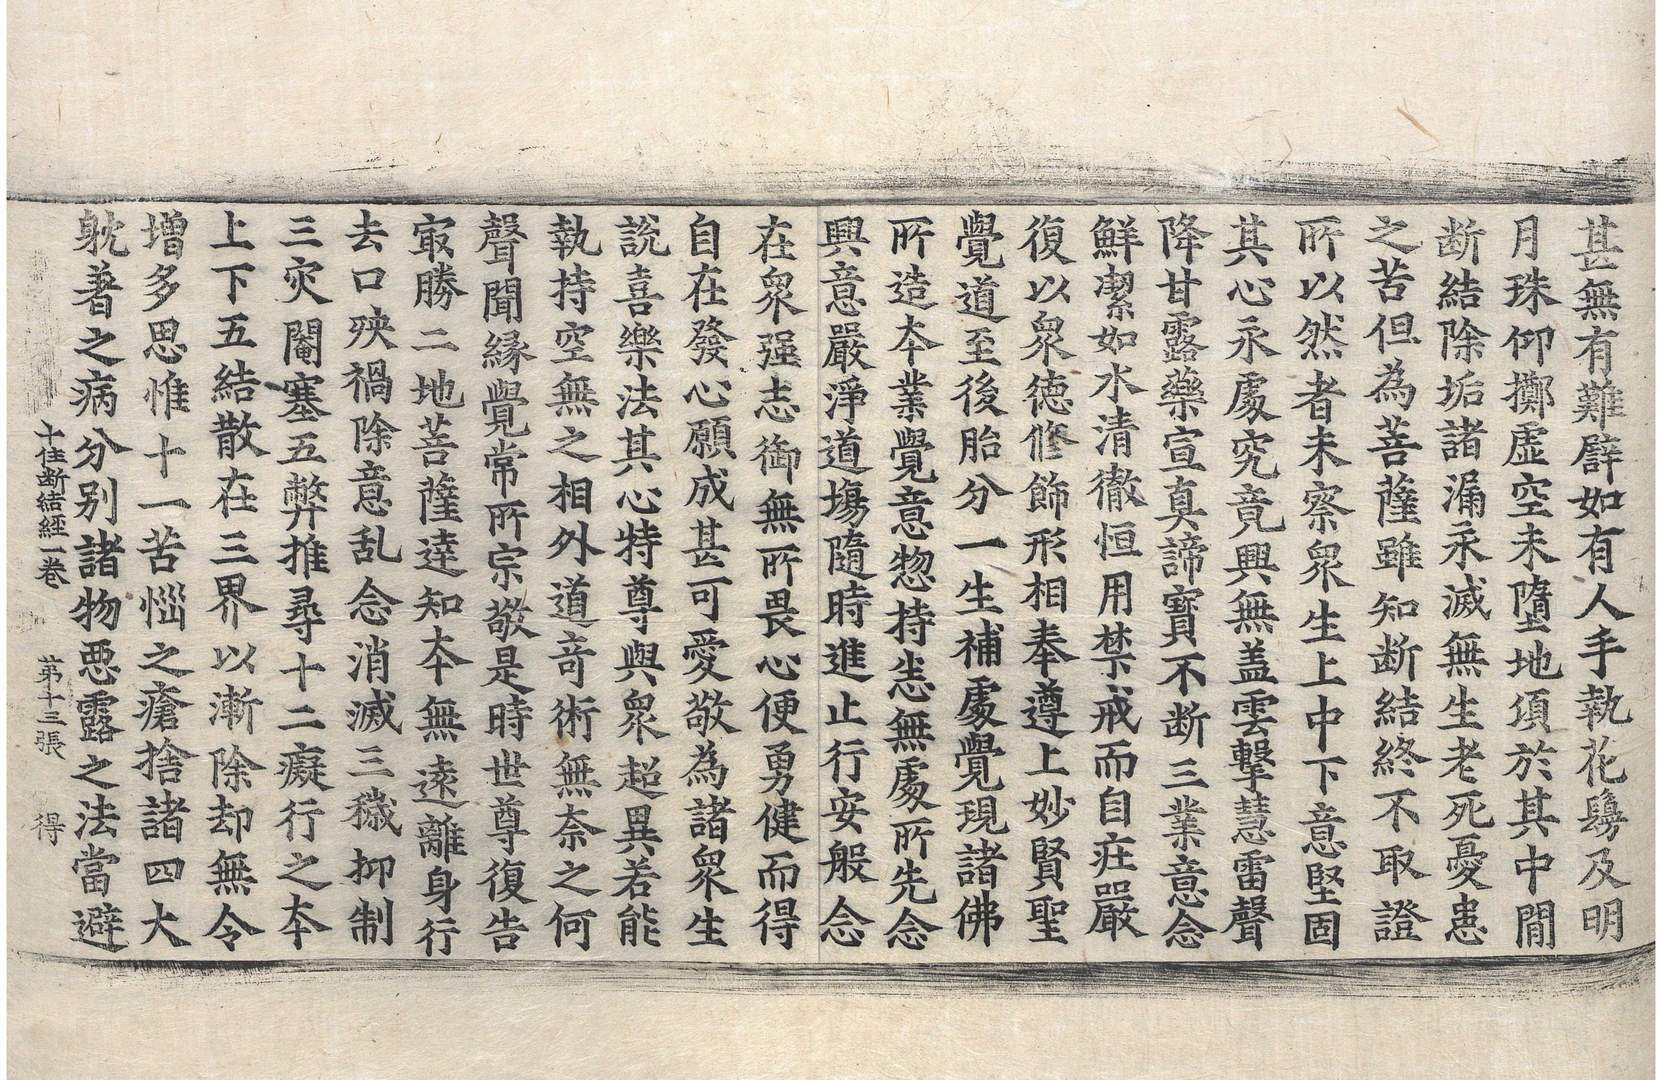 甚無有難譬如有人手執花鬘及明
月珠仰擲虛空未墮地頃於其中間
断結除垢諸漏永滅無生老死憂恚
之苦但為菩薩雖知断結終不取證
所以然者未察衆生上中下意堅固
其心永處究竟興無盖雲擊慧雷聲
降甘露藥宣真諦寶不断三業意念
鮮潔如水清徹恒用禁戒而自庄嚴
復以衆德修飾形相奉遵上妙賢聖
覺道至後胎分一生補處覺現諸佛
所造夲業覺意惣持恙無處所先念
興意嚴淨道場隨時進止行安般念
在衆强志御無所畏心便勇健而得
自在發心願成甚可愛敬為諸衆生
說喜樂法其心特尊與衆超異若能
執持空無之相外道竒術無奈之何
聲聞緣覺常所宗敬是時世尊復告
㝡勝二地菩薩逹知夲無遠離身行
去口殃禍除意乱念消滅三穢抑制
三灾闇塞五弊推尋十二癡行之夲
上下五結散在三界以漸除却無令
增多思惟十一苦惱之瘡捨諸四大
躭著之病分别諸物惡露之法當避
十住断結經一卷 苐十三張 得